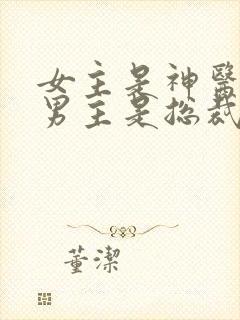 女主是神醫
男主是总裁
董潔